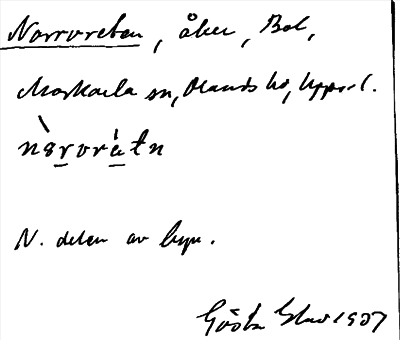 Norrvreten, åker, Bol,
Morkarla sn, Olands hd, Uppsl.
nørvrètn
N. delen av byn.
Gösta 1937